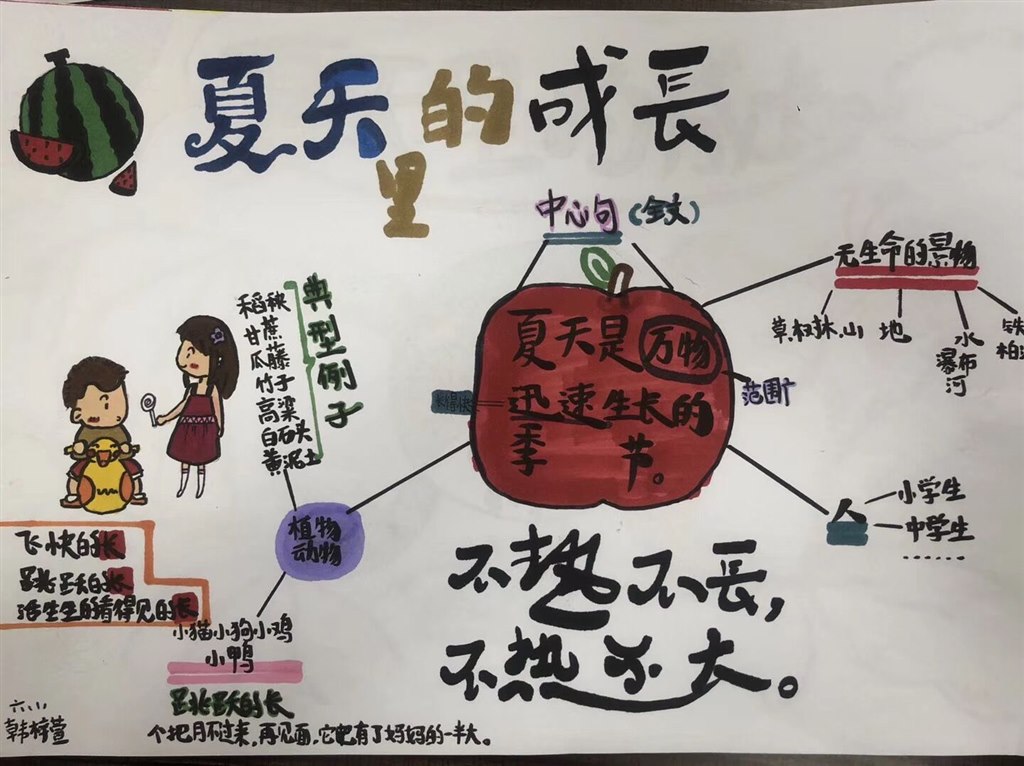 夏天里的成長
中心句(全文)
无生命的景物
草、树林、山
地
水
瀑布
河
铁
柏
夏天是万物
迅速生长的
季节。
长得快
范围广
人
小学生
中学生
……
典型例子
稻秧
甘蔗
瓜藤
竹子
高粱
白石头
黄泥土
植物
动物
飞快的长
跳跃的长
活生生的看得见的长
小猫小狗小鸡
小鸭
跳跃的长
个把月不过来,再见面,它已有了妈妈的一半大。
不热不長,
不热不大。
韩梓萱